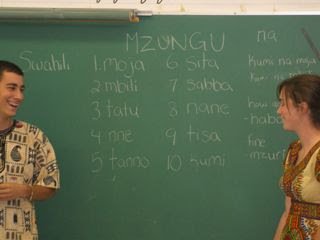 MZUNGU
na
Swahili
1. moja
2 mbili
3 tatu
4 nne
5 tanno
6 sita
7 sabba
8 nane
9 tisa
10 kumi
Kumi na moja
Kumi na
-haba
fine
-mzuri